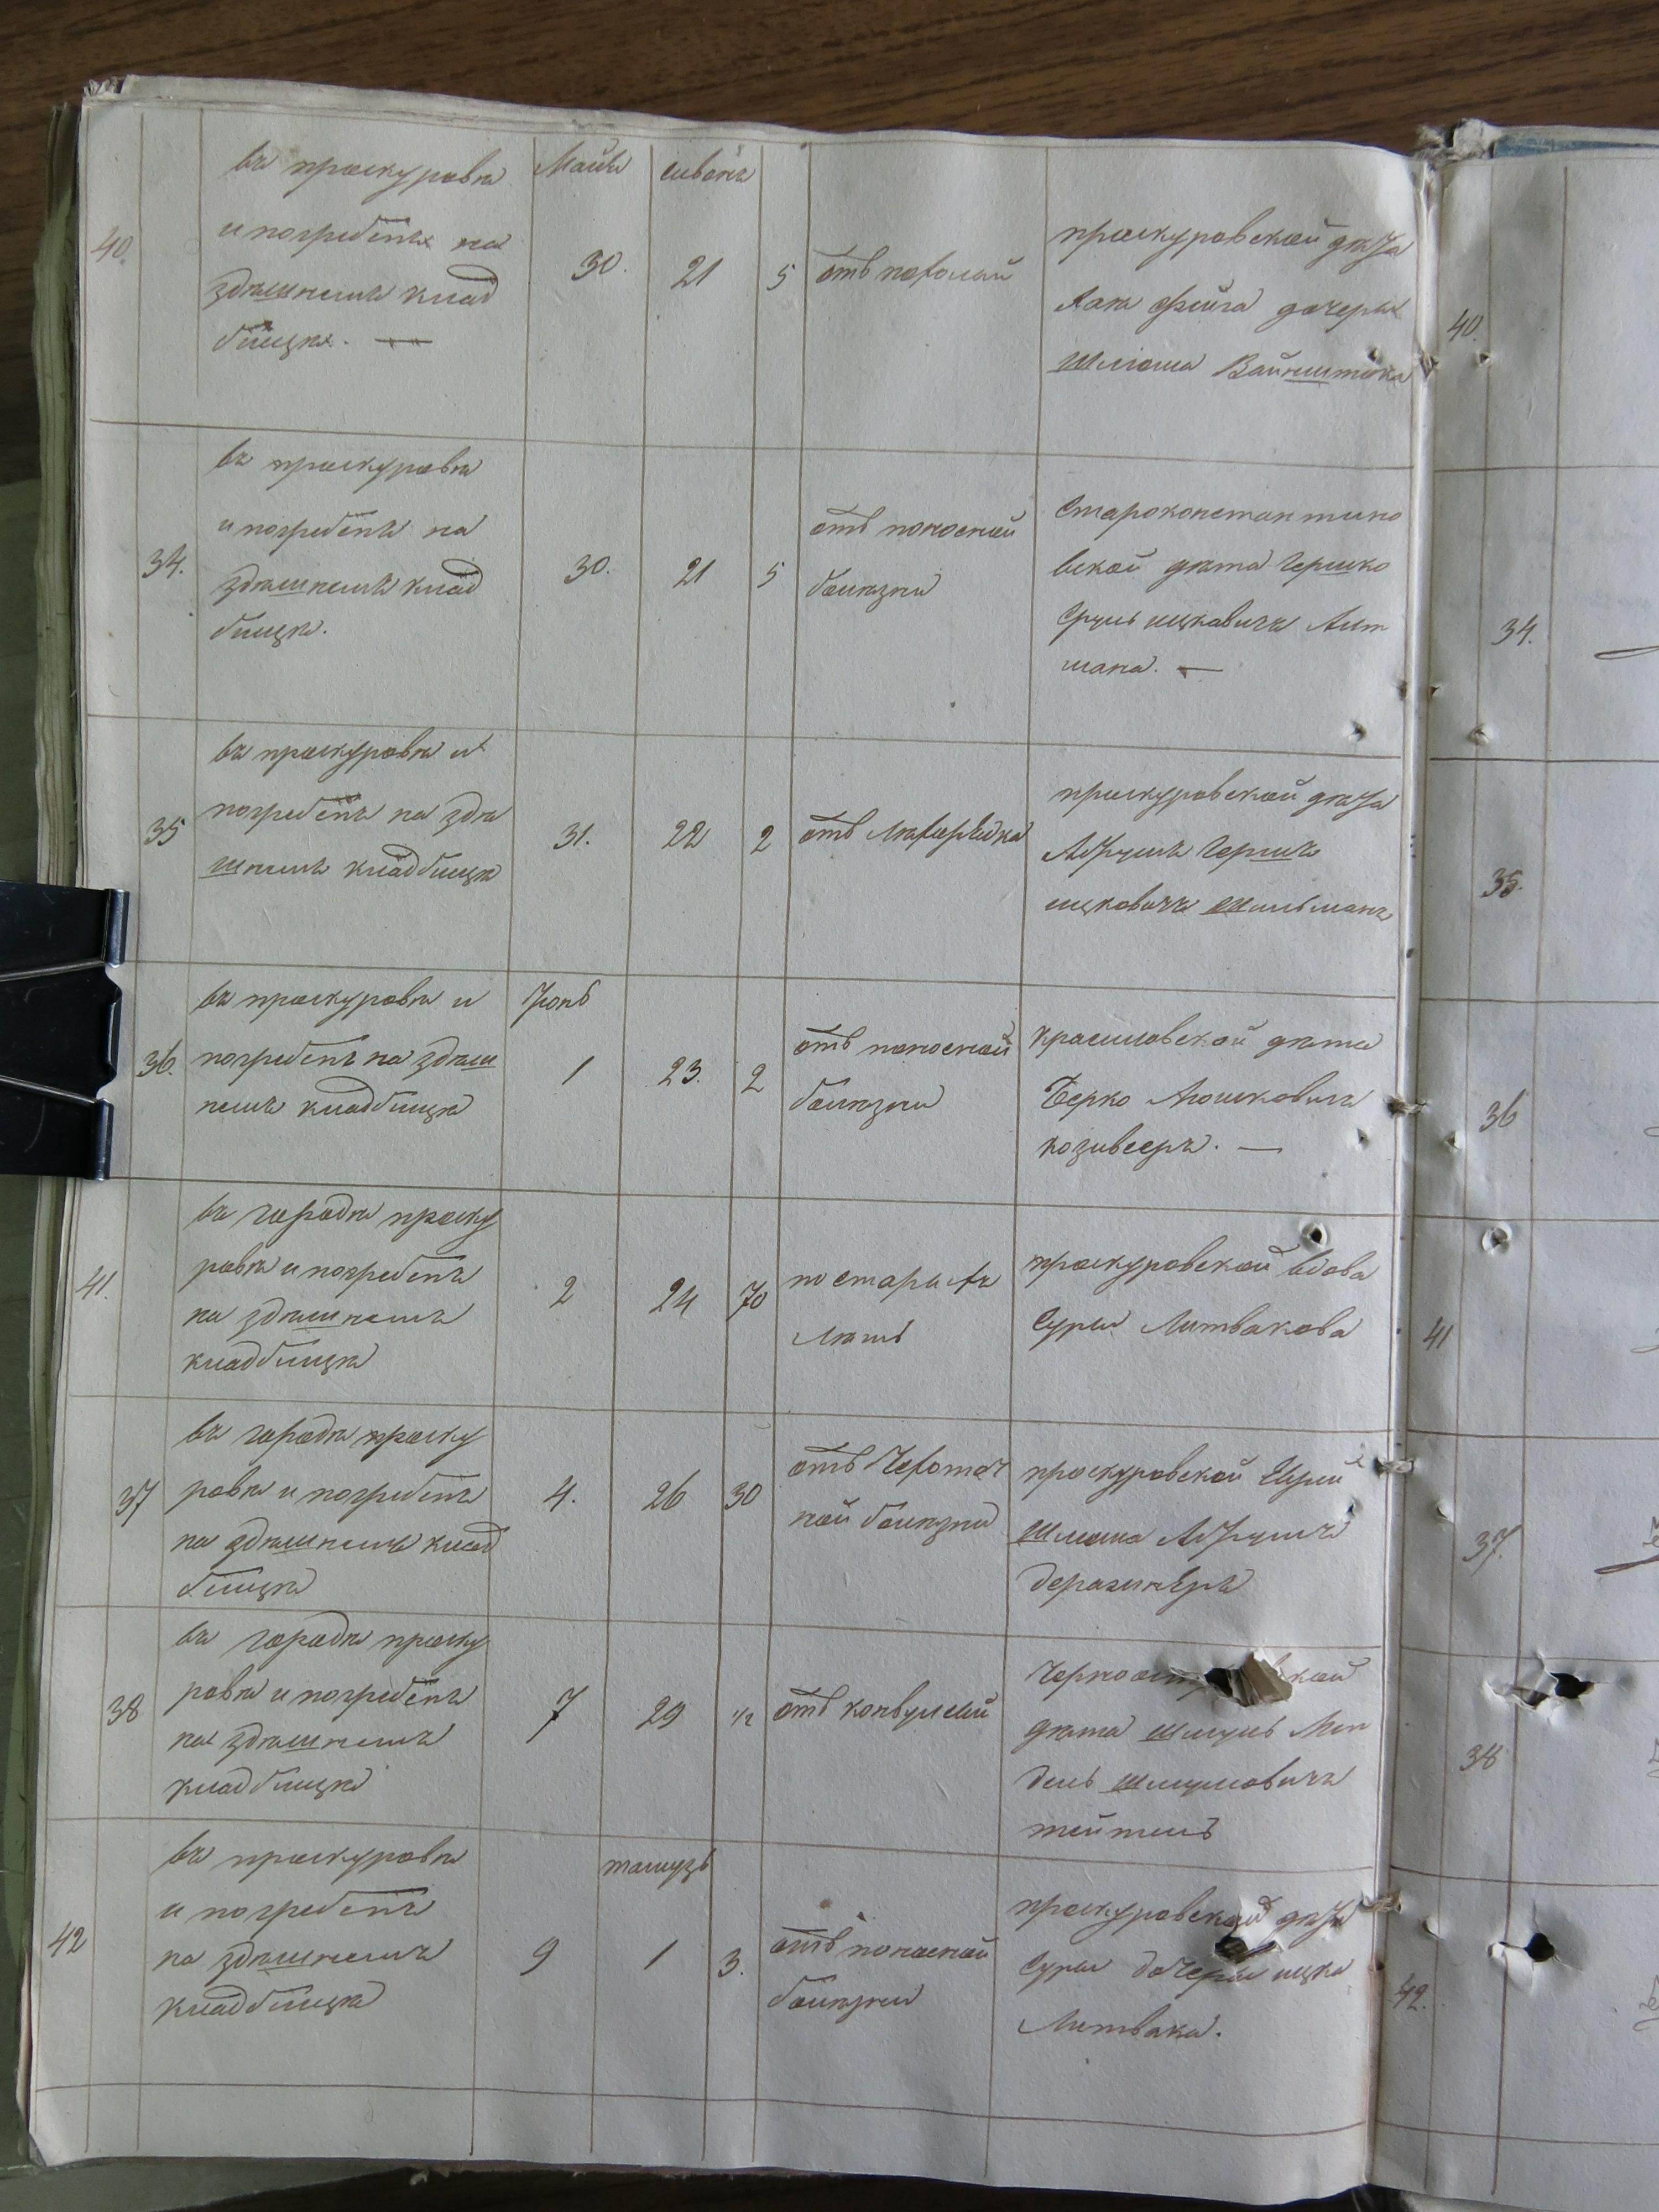 въ проскуровѣ
и погребенъ на
здѣшнемъ клад
бищѣ. —
40.
Май
30.
сиванъ
21
5
отъ
проскуровской
Хана Фейга дочеры
Шлiома Вайнштока
40.
въ проскуровѣ
и погребенъ на
здѣшнемъ клад
бищѣ.
34.
30.
21
5
отъ поносной
болѣзни
Староконстантино
вской дѣта Гершко
Сруль ицковичъ Лит
мана. —
34.
въ проскуровѣ и
погребенъ на здѣ
шнемъ кладбищѣ
35
31.
22
2
отъ
проскуровской
Абрумъ Гершъ
ицковичъ Шильманъ
35.
въ проскуровѣ и
погребенъ на здѣш
немъ кладбищѣ
36.
Июнь
1
23.
2
отъ поносной
болѣзни
красиловской дѣта
Берко Мошковичъ
36
въ городѣ проску
ровѣ и погребенъ
на здѣшнемъ
кладбищѣ
41.
2
24
70
лѣтъ
проскуровской вдова
Суры Литвакова
41
въ городѣ проску
ровѣ и погребенъ
на здѣшнемъ клад
бищѣ
37
4.
26
30
отъ Чехоточ
ной болѣзни
проскуровской
Шлiома Абрумъ
деражнѣръ
37.
въ городѣ проску
ровѣ и погребенъ
на здѣшнемъ
кладбищѣ
38
7
29
1/2
отъ конвулсiй
дѣта Шмуль Мен
дель Шмулiовичъ
тейтель
38
въ проскуровѣ
и погребенъ
на здѣшнемъ
кладбищѣ
42
9
тамузъ
1
3.
отъ поносной
болѣзни
проскуровской
Суры дочеры ицка
Литвака.
42.